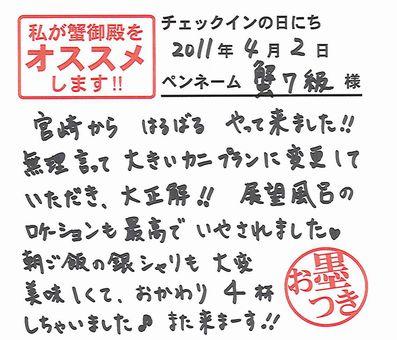 私が蟹御殿を
オススメ
します!!
チェックインの日にち
2011年4月2日
ペンネーム 蟹7級 様
宮崎から はるばる やって来ました!!
無理言って 大きいカニプランに変更して
いただき、大正解!! 展望風呂の
ロケーションも最高で いやされました♥
朝ご飯の銀シャリも 大変
美味しくて、おかわり 4杯
しちゃいました♪ また来まーす!!
お墨つき